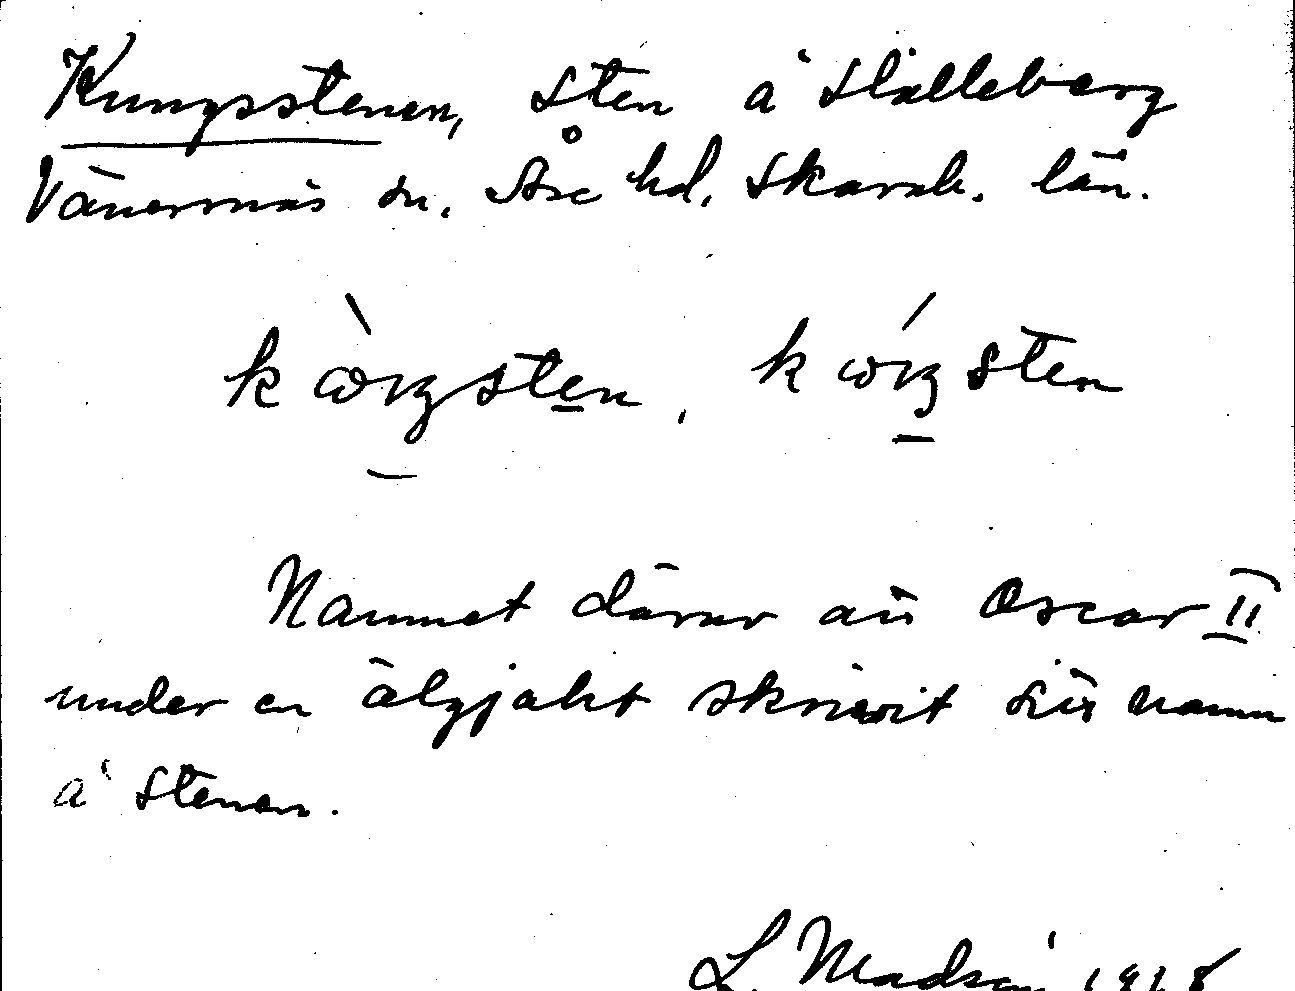 Kungsstenen, Sten å Halleberg
Vänersnäs sn. Åse hd. Skarab. län.
kùŋsten, kúŋsten
Namnet därav att Oscar II
under en älgjakt skrivit sitt namn
å stenen.
L. Madsén 1918